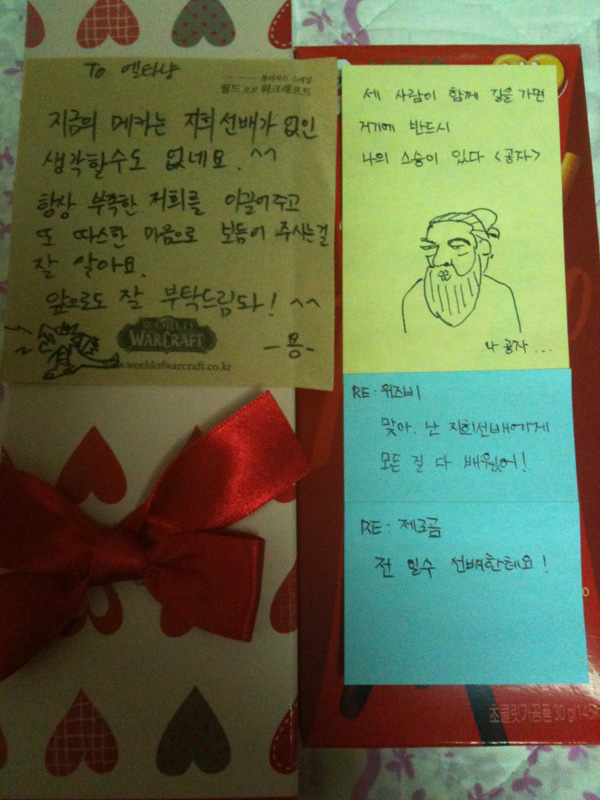 To 엘타냥
블리자드 스케일
월드 오브 워크래프트
지금의 메카는 지희선배가 없인
생각할수도 없네요. ^^
항상 부족한 저희를 이끌어주고
또 따스한 마음으로 보듬어 주시는걸
잘 알아요.
앞으로도 잘 부탁드림돠! ^^
-용-
WORLD
WARCRAFT
www.worldofwarcraft.co.kr
세 사람이 함께 길을 가면
거기에 반드시
나의 스승이 있다 <공자>
나 공자...
RE: 위즈비
맞아. 난 지희선배에게
모든 걸 다 배웠어!
RE: 제크곰
전 밀수 선배한테요!
초콜릿가공품 30 g/145